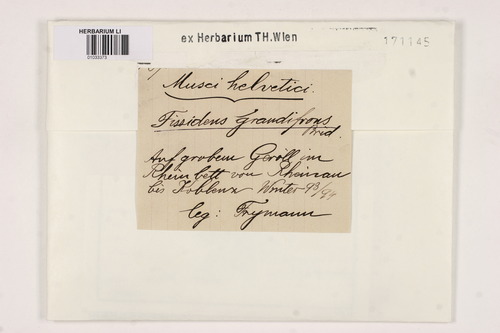 HERBARIUM LI
01033373
ex Herbarium TH.Wien
171145
Musci helvetici.
Fissidens grandifrons
Brid.
Auf grobem Geröll im
Rheinbett von Rheinau
bis Koblenz Winter 93/94
leg: